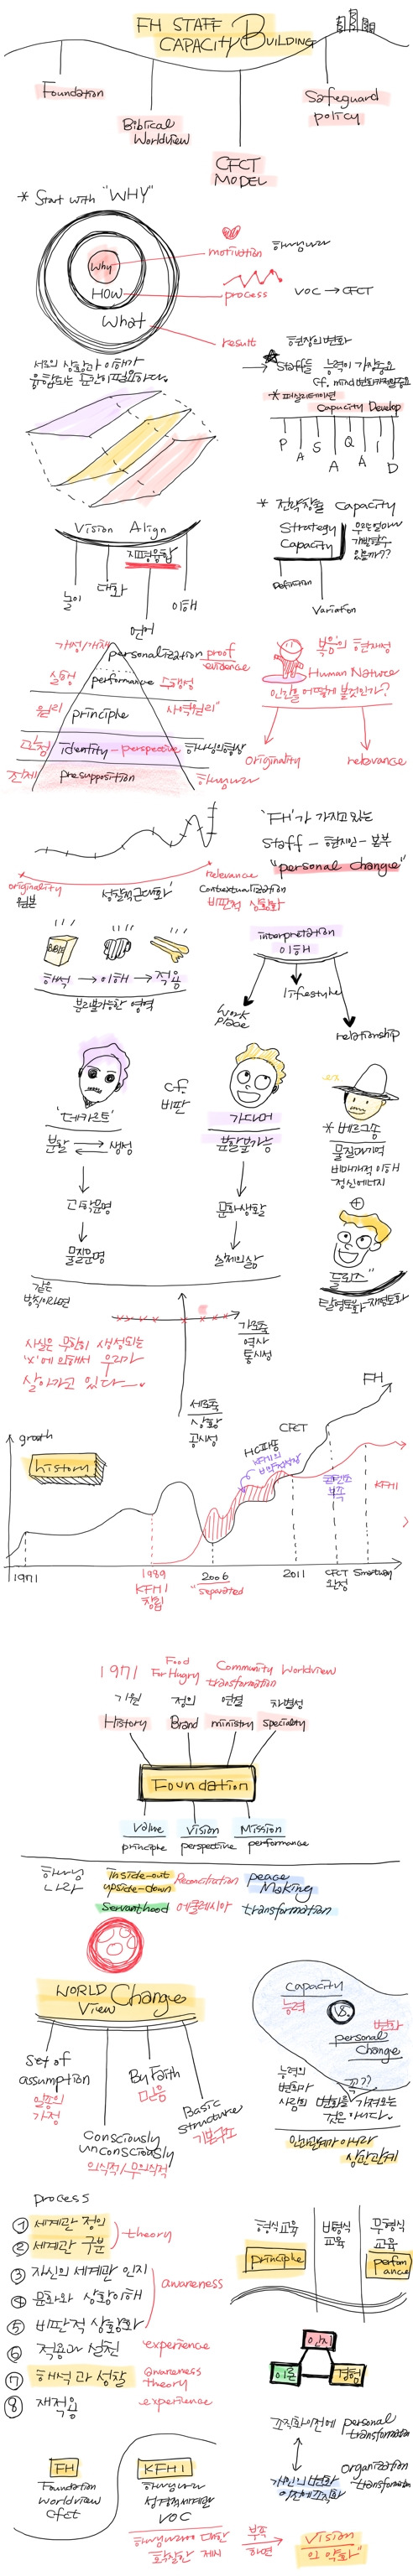 FH STAFF
CAPACITY BUILDING
Foundation
Biblical
Worldview
CFCT
MODEL
Safeguard
policy
* Start with "WHY"
Why
HOW
What
motivation 하나님나라
process VOC → CFCT
result 현장의 변화
서로의 상황과 이해가
융합되는 순간이 필요하다.
→ Staff들 능력이 가장중요
cf. mind변화가 가장중요
* 퍼실리테이션
Capacity Develop
P A S A Q A I D
Vision Align
지평융합
놀이
대화
언어
이해
* 전략창출 Capacity
Strategy
Capacity
우리는 얼마나
개발할수
있을까??
Definition
Variation
가정/개체 personalization proof
evidence
실행 performance 수행성
원리 principle 사역원리"
관점 identity - perspective 하나님의형상
전제 presupposition 하나님나라
복음의 현재성
Human Nature
인간을 어떻게 볼것인가?
originality
relevance
originality
원본
성찰적근대화
relevance
contextualization
비판적 상황화
'FH'가 가지고 있는
Staff - 현지인 - 본부
"personal change"
해석 → 이해 → 적용
분리불가능한 영역
interpretation
이해
Work
place
lifestyle
relationship
'데카르트'
분할 ⇄ 생성
↓
과학문명
↓
물질문명
cf.
비판
가다머
분할불가능
↓
문화생활
↓
실제의삶
ex
* 베르그송
물질과기억
비매개적 이해
정신에너지
⊕
들뢰즈"
탈영토화-재영토화
같은
방식이라면
사실은 무한히 생성되는
'x'에 의해서 우리가
살아가고 있다
가로축
역사
통시성
세로축
상황
공시성
growth
history
CFCT
FH
KFHI
1971
1989
KFHI
창립
2006
"separated
2011
CFCT
완성
Smartway
1971 Food
For Hungry Community
transformation Worldview
기원 정의 연결 차별성
History Brand ministry specialty
Foundation
Value Vision Mission
principle perspective performance
하나님
나라
inside-out
upside-down
Reconciliation
peace
Making
servanthood 에클레시아 transformation
WORLD
View Change
Set of
assumption
일종의
가정
Consciously
unconsciously
의식적/무의식적
By Faith
믿음
Basic
structure
기본구조
capacity
능력
VS.
변화
personal
change
꼭??
능력의
변화가
사람의 변화를 가져오는
것은 아니다.
인과관계가 아니라
상관관계
process
① 세계관 정의
② 세계관 구분
theory
③ 자신의 세계관 인지
④ 문화와 상황이해
⑤ 비판적 상황화
awareness
⑥ 적용과 실천 experience
⑦ 해석과 성찰 awareness
theory
⑧ 재적용 experience
형식교육
비형식
교육
무형식
교육
principle
perform
ance
인지
이론
경험
조직화이전에 personal
transformation
개인의 변화
이전에 조직화
organization
transformation
FH
Foundation
Worldview
cfct
KFHI
하나님나라
성경적세계관
VOC
하나님나라에 대한
확실한 제시
부족
하면
→
Vision
의 약화"